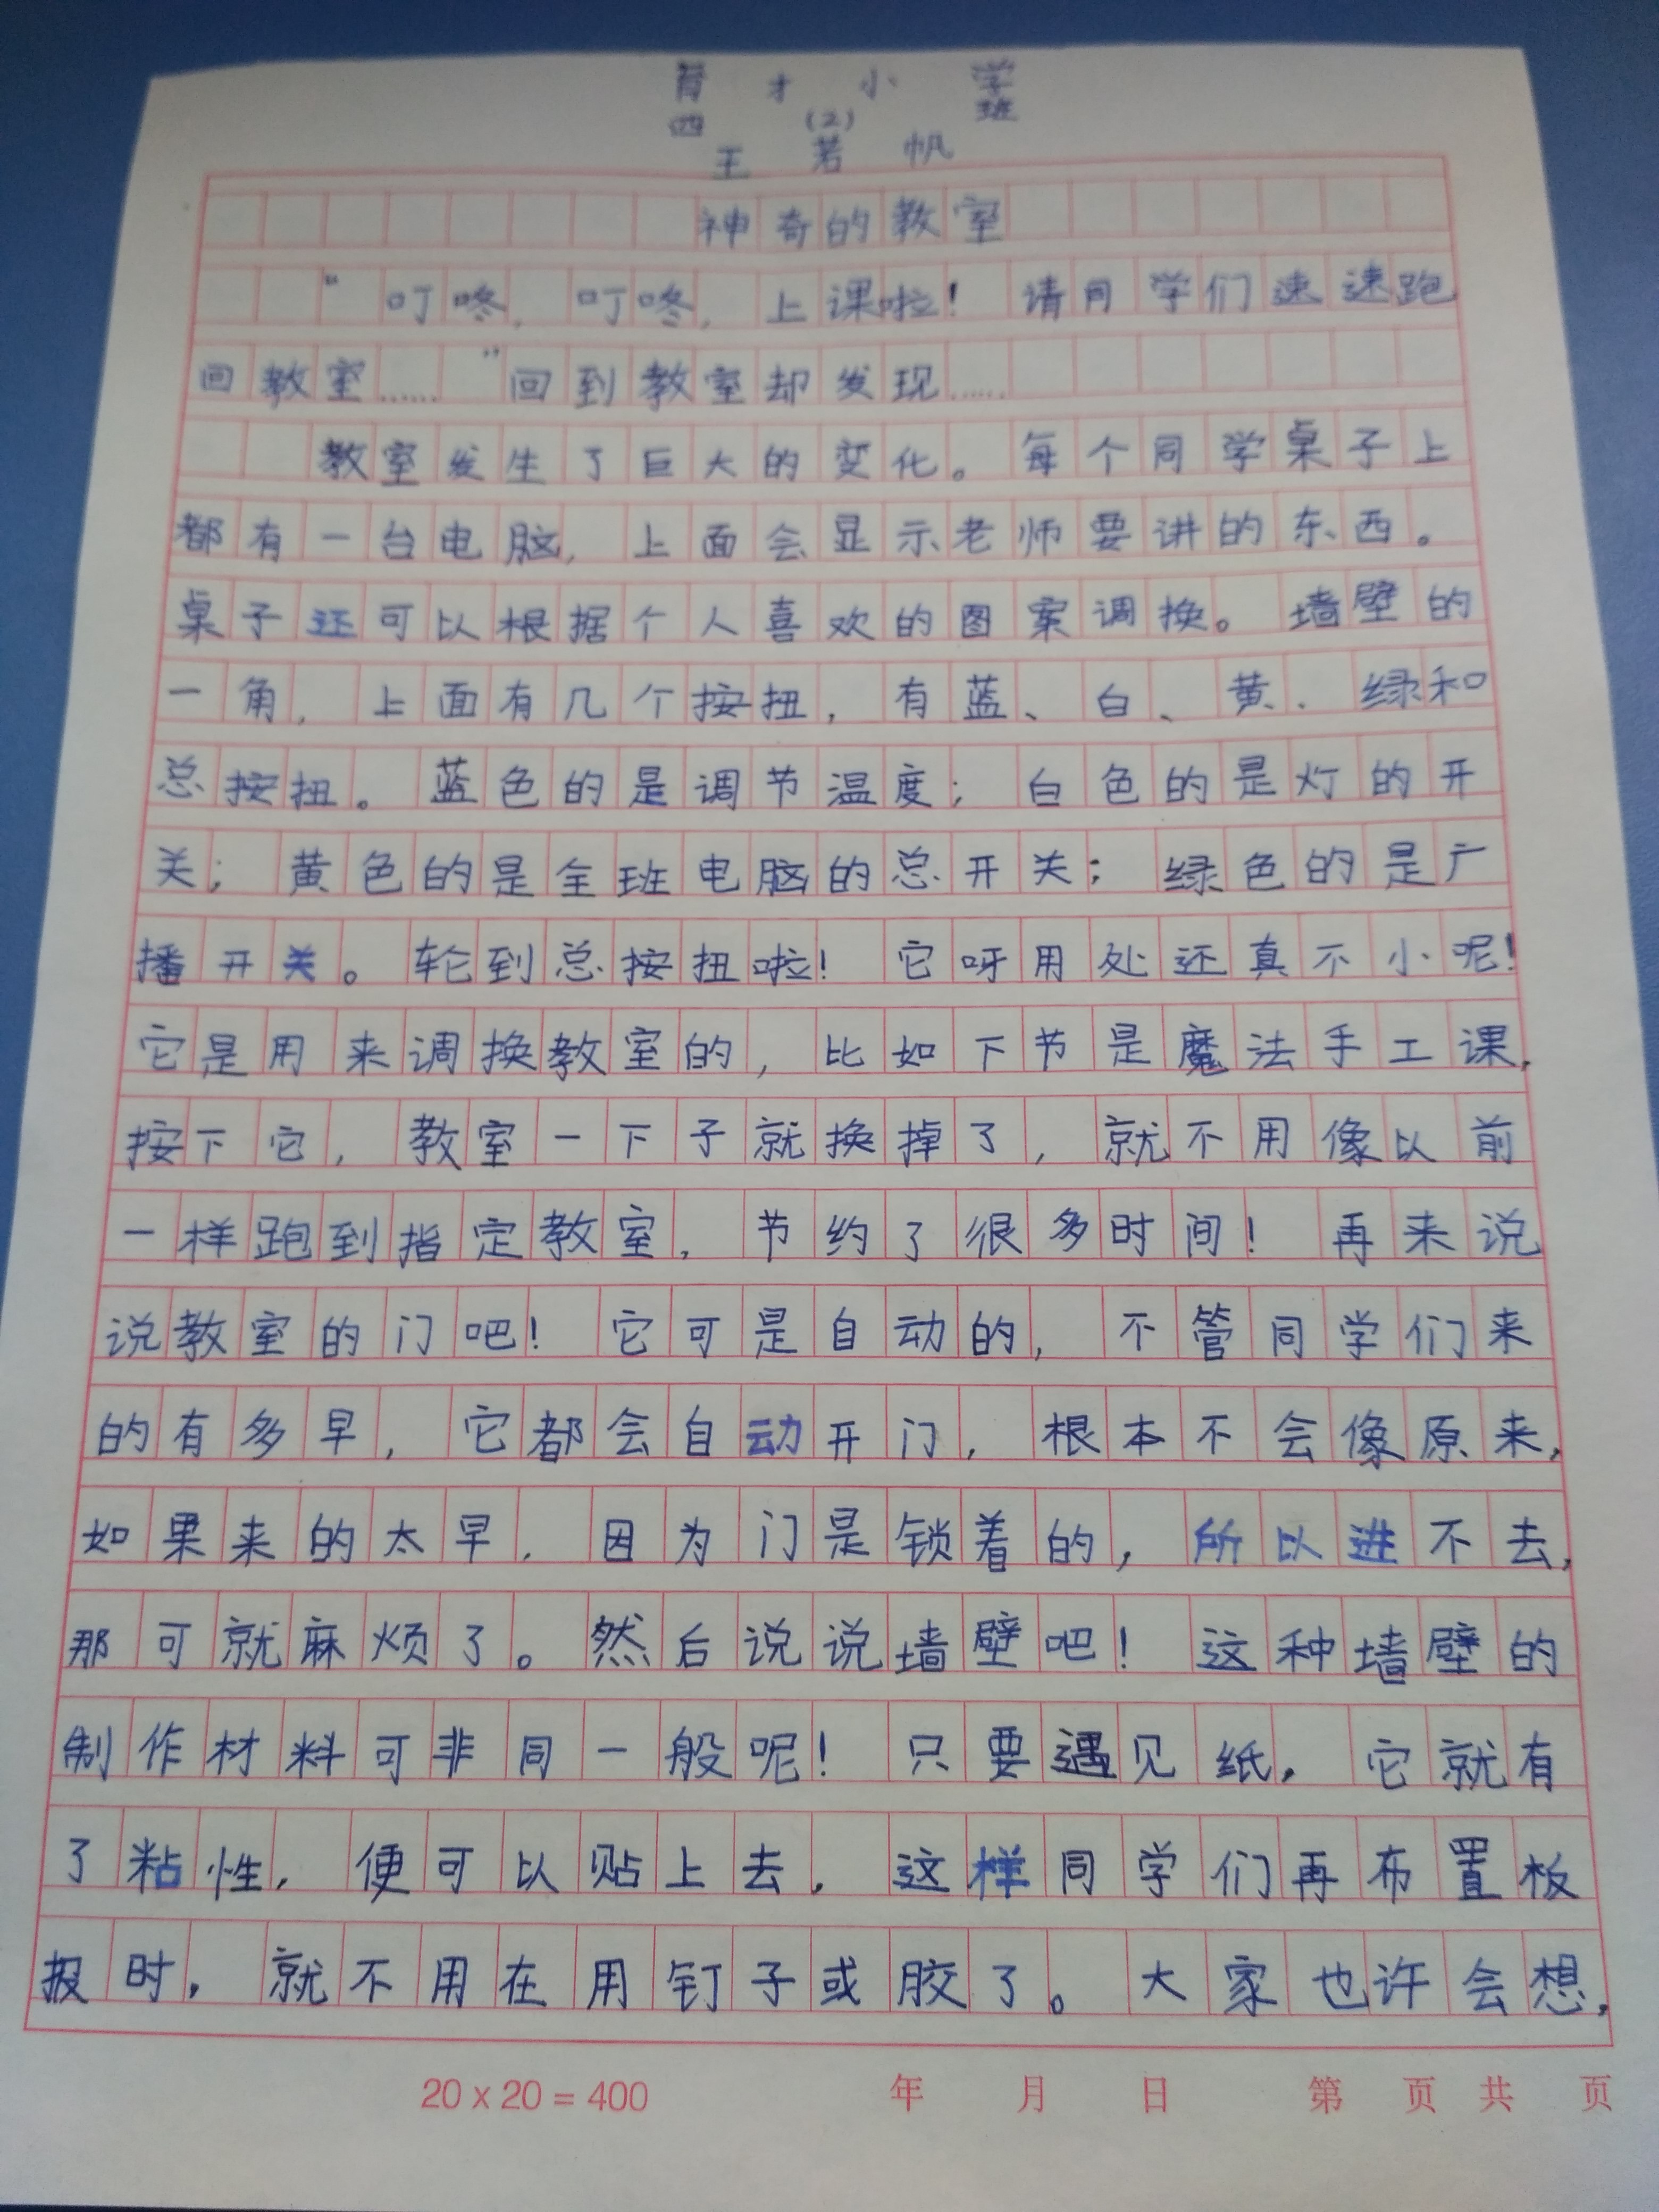 育才小学
四(2)班
王若帆
神奇的教室
“叮咚，叮咚，上课啦！请同学们速速跑
回教室……”回到教室却发现……
教室发生了巨大的变化。每个同学桌子上
都有一台电脑，上面会显示老师要讲的东西。
桌子还可以根据个人喜欢的图案调换。墙壁的
一角，上面有几个按扭，有蓝、白、黄、绿和
总按扭。蓝色的是调节温度；白色的是灯的开
关；黄色的是全班电脑的总开关；绿色的是广
播开关。轮到总按扭啦！它呀用处还真不小呢！
它是用来调换教室的，比如下节是魔法手工课，
按下它，教室一下子就换掉了，就不用像以前
一样跑到指定教室，节约了很多时间！再来说
说教室的门吧！它可是自动的，不管同学们来
的有多早，它都会自动开门，根本不会像原来，
如果来的太早，因为门是锁着的，所以进不去，
那可就麻烦了。然后说说墙壁吧！这种墙壁的
制作材料可非同一般呢！只要遇见纸，它就有
了粘性，便可以贴上去，这样同学们再布置板
报时，就不用在用钉子或胶了。大家也许会想，
20 x 20 = 400 年 月 日 第 页 共 页